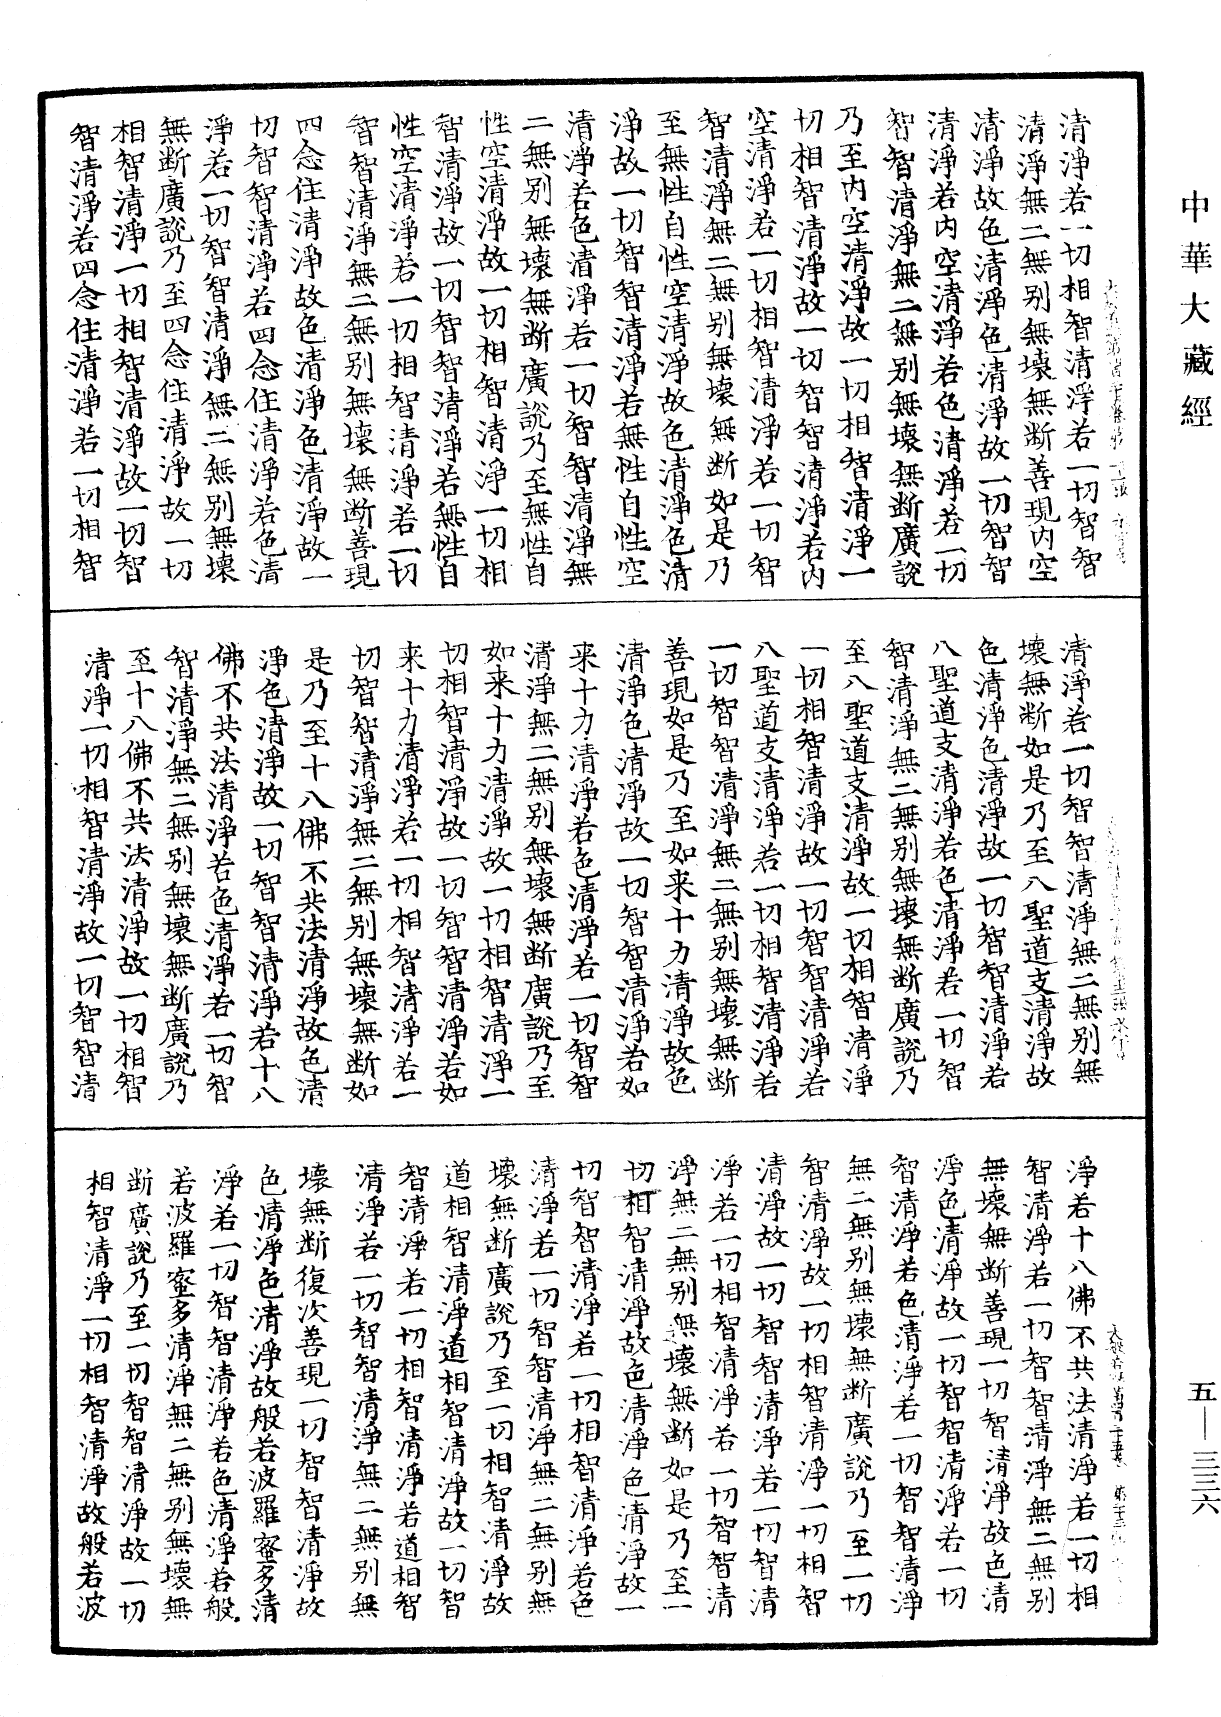 中華大藏經
清淨若一切相智清淨若一切智智
清淨無二無別無壞無斷善現內空
清淨故色清淨色清淨故一切智智
清淨若內空清淨若色清淨若一切
智智清淨無二無別無壞無斷廣說
乃至內空清淨故一切相智清淨一
切相智清淨故一切智智清淨若內
空清淨若一切相智清淨若一切智
智清淨無二無別無壞無斷如是乃
至無性自性空清淨故色清淨色清
淨故一切智智清淨若無性自性空
清淨若色清淨若一切智智清淨無
二無別無壞無斷廣說乃至無性自
性空清淨故一切相智清淨一切相
智清淨故一切智智清淨若無性自
性空清淨若一切相智清淨若一切
智智清淨無二無別無壞無斷善現
四念住清淨故色清淨色清淨故一
切智智清淨若四念住清淨若色清
淨若一切智智清淨無二無別無壞
無斷廣說乃至四念住清淨故一切
相智清淨一切相智清淨故一切智
智清淨若四念住清淨若一切相智
清淨若一切智智清淨無二無別無
壞無斷如是乃至八聖道支清淨故
色清淨色清淨故一切智智清淨若
八聖道支清淨若色清淨若一切智
智清淨無二無別無壞無斷廣說乃
至八聖道支清淨故一切相智清淨
一切相智清淨故一切智智清淨若
八聖道支清淨若一切相智清淨若
一切智智清淨無二無別無壞無斷
善現如是乃至如来十力清淨故色
清淨色清淨故一切智智清淨若如
来十力清淨若色清淨若一切智智
清淨無二無別無壞無斷廣說乃至
如来十力清淨故一切相智清淨一
切相智清淨故一切智智清淨若如
来十力清淨若一切相智清淨若一
切智智清淨無二無別無壞無斷如
是乃至十八佛不共法清淨故色清
淨色清淨故一切智智清淨若十八
佛不共法清淨若色清淨若一切智
智清淨無二無別無壞無斷廣說乃
至十八佛不共法清淨故一切相智
清淨一切相智清淨故一切智智清
淨若十八佛不共法清淨若一切相
智清淨若一切智智清淨無二無別
無壞無斷善現一切智清淨故色清
淨色清淨故一切智智清淨若一切
智清淨若色清淨若一切智智清淨
無二無別無壞無斷廣說乃至一切
智清淨故一切相智清淨一切相智
清淨故一切智智清淨若一切智清
淨若一切相智清淨若一切智智清
淨無二無別無壞無斷如是乃至一
切相智清淨故色清淨色清淨故一
切智智清淨若一切相智清淨若色
清淨若一切智智清淨無二無別無
壞無斷廣說乃至一切相智清淨故
道相智清淨道相智清淨故一切智
智清淨若一切相智清淨若道相智
清淨若一切智智清淨無二無別無
壞無斷復次善現一切智智清淨故
色清淨色清淨故般若波羅蜜多清
淨若一切智智清淨若色清淨若般
若波羅蜜多清淨無二無別無壞無
斷廣說乃至一切智智清淨故一切
相智清淨一切相智清淨故般若波
五—三三六